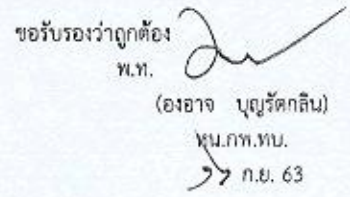 ขอรับรองว่าถูกต้อง
พ.ท.
(องอาจ บุญรัตกลิน)
หน.กพ.ทบ.
ก.ย. 63